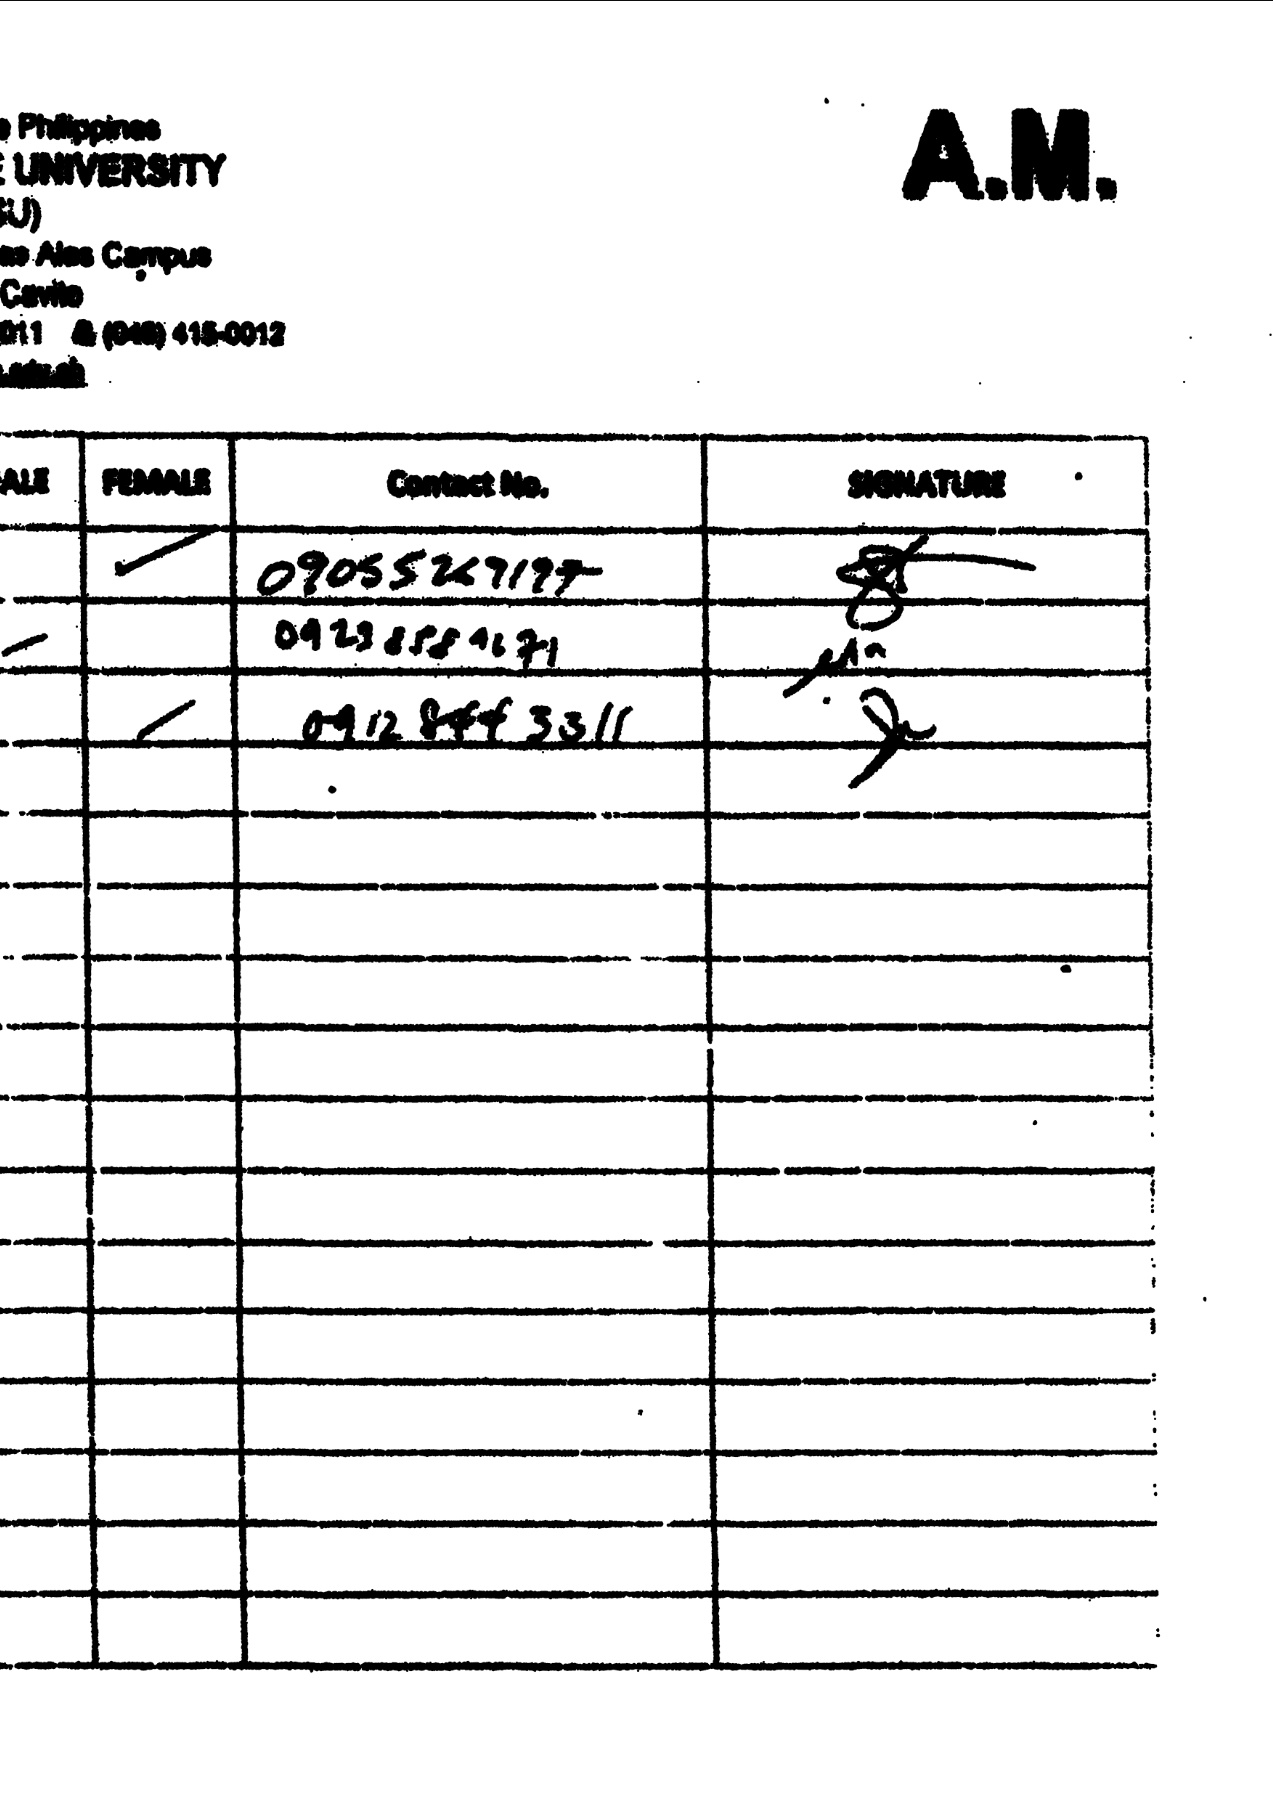 e Philippines
A.M.
E UNIVERSITY
SU)
as Alas Campus
Cavite
011 & (046) 415-0012
.edu.ph
ALE FEMALE Contact No. SIGNATURE
09055267197
0923 858 4671
0912 844 3311